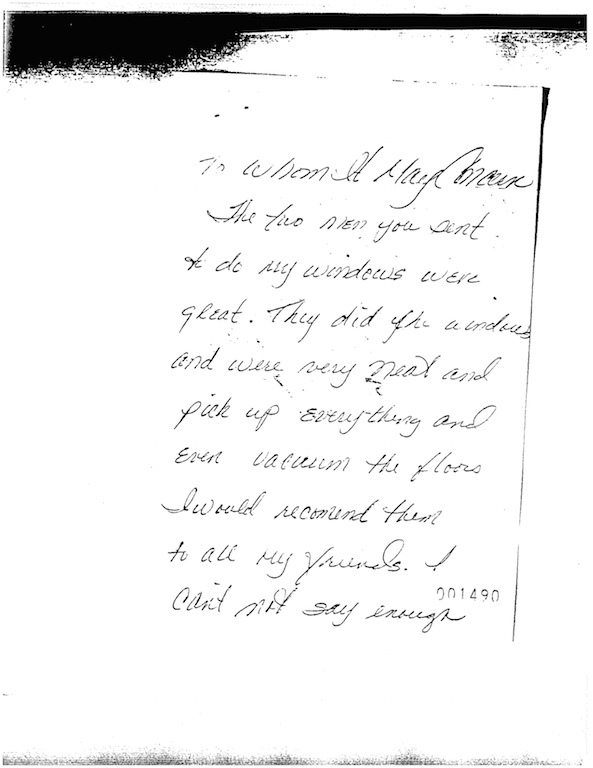 To Whom It May Concern
The two men you sent
to do my windows were
great. They did the windows
and were very neat and
pick up everything and
even vacuum the floors
I would recomend them
to all my friends. I
001490
can't not say enough